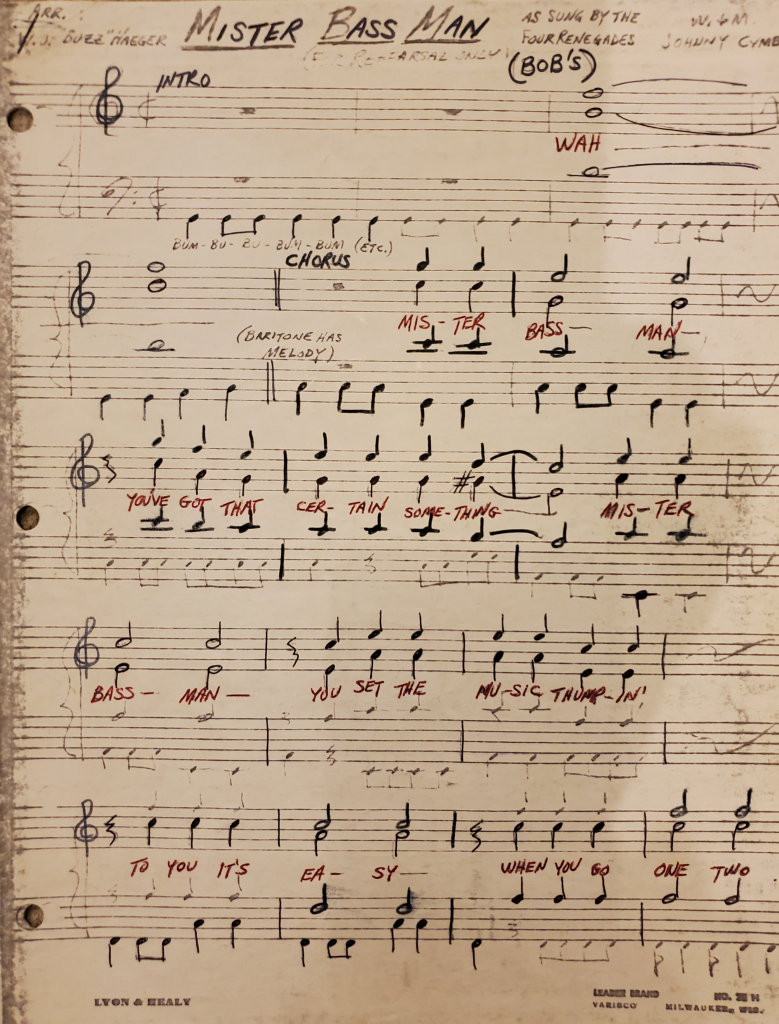 ARR.: MISTER BASS MAN AS SUNG BY THE W. & M.
W.J. "BUZZ" HAEGER (FOR REHEARSAL ONLY) FOUR RENEGADES JOHNNY CYMB
(BOB'S)
INTRO
WAH
BUM-BU-BU-BUM-BUM (ETC.)
CHORUS
(BARITONE HAS
MELODY)
MIS-TER BASS- MAN-
YOU'VE GOT THAT CER-TAIN SOME-THING MIS-TER
BASS- MAN- YOU SET THE MU-SIC THUMP-IN'
TO YOU IT'S EA-SY- WHEN YOU GO ONE TWO
LYON & HEALY
LEADER BRAND
VARISCO MILWAUKEE, WIS.